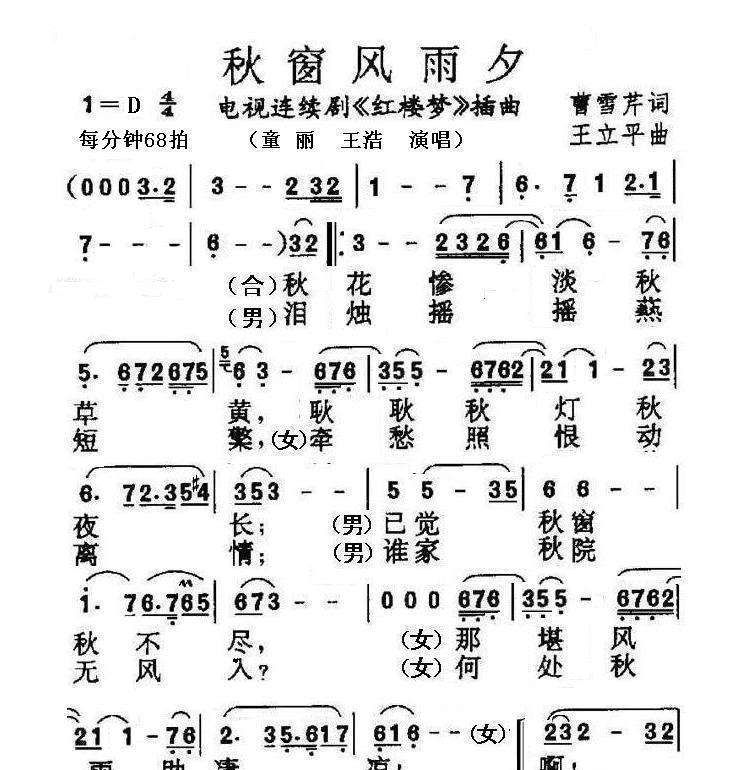 秋窗风雨夕
1=D 4/4 电视连续剧《红楼梦》插曲 曹雪芹词
每分钟68拍 （童丽 王浩 演唱） 王立平曲
(0 0 0 3.2 | 3 - - 2 32 | 1 - - 7 | 6. 7 1 2.1 |
7 - - - | 6 - - )32 |: 3 - - 2326 | 61 6 - 76 |
（合）秋 花 惨 淡 秋
（男）泪 烛 摇 摇 爇
5. 672675 | 6 3 - 676 | 355 - 6762 | 21 1 - 23 |
草 黄， 耿 耿 秋 灯 秋
短 檠，（女）牵 愁 照 恨 动
6. 72.35#4 | 353 - - | 5 5 - 35 | 6 6 - - |
夜 长； （男）已觉 秋窗
离 情； （男）谁家 秋院
1. 76.765 | 673 - - | 0 0 0 676 | 355 - 6762 |
秋 不 尽， （女）那 堪 风
无 风 入？ （女）何 处 秋
21 1 - 76 | 2. 35.617 | 616 - (女) | 232 - 32
雨 助 凄 凉； 啊；